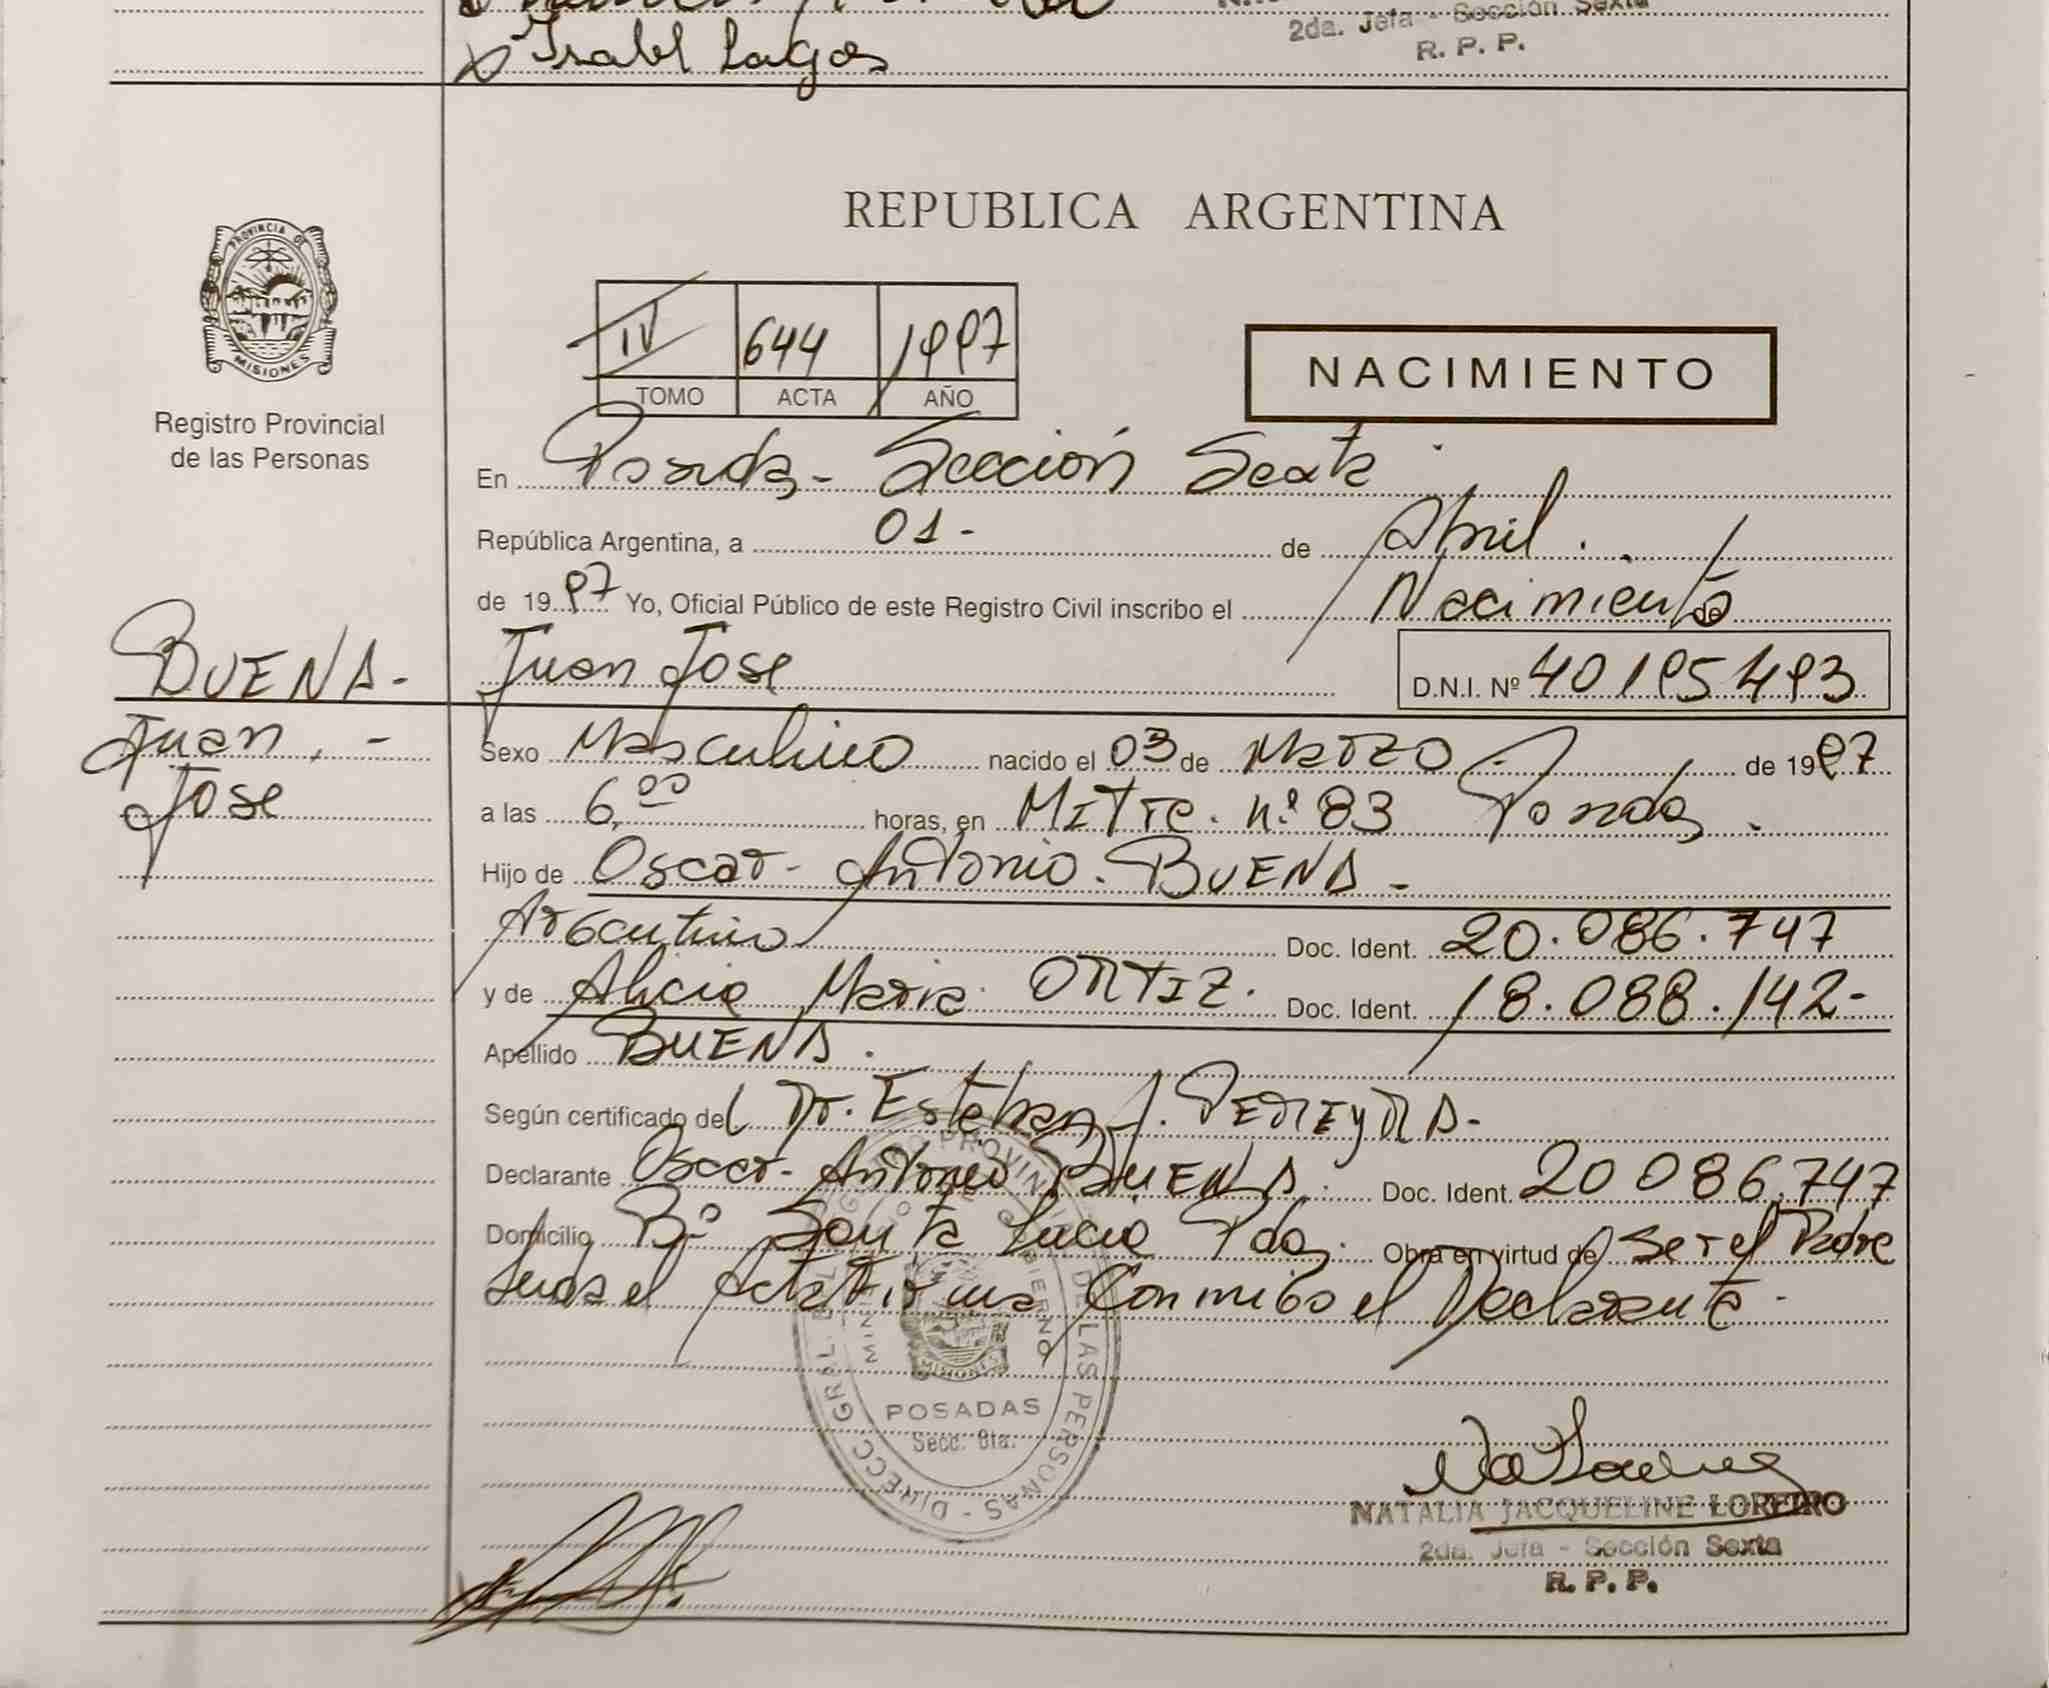 2da. Jefa - Sección Sexta
Isabel Lagos
R. P. P.
REPUBLICA ARGENTINA
PROVINCIA DE
MISIONES
Registro Provincial
de las Personas
IV 644 1997
TOMO ACTA AÑO
NACIMIENTO
En Posadas - Sección Sexta
República Argentina, a 01- de Abril.
de 1997 Yo, Oficial Público de este Registro Civil inscribo el Nacimiento de
BUENA- Juan Jose D.N.I. Nº 40195493
Juan, - Sexo Masculino nacido el 03 de Marzo - de 1997
Jose a las 6,00 horas, en Mitre. nº 83 Posadas.
Hijo de Oscar- Antonio. BUENA-
Argentino Doc. Ident. 20.086.747
y de Alicia Maria ORTIZ. Doc. Ident. 18.088.142-
Apellido BUENA.
Según certificado del Dr. Esteban J. PEREYRA-
Declarante Oscar- Antonio BUENA. Doc. Ident. 20 086.747
Domicilio Bº Santa Lucia Pdas. Obra en virtud de Ser el Padre
el Acta Firma Conmigo el Declarante-
DIRECC. GRAL. DEL REGISTRO PROVINCIAL DE LAS PERSONAS -
MINISTERIO DE GOBIERNO
MISIONES
POSADAS
Secc. 6ta.
NATALIA JACQUELINE LOREIRO
2da. Jefa - Sección Sexta
R. P. P.